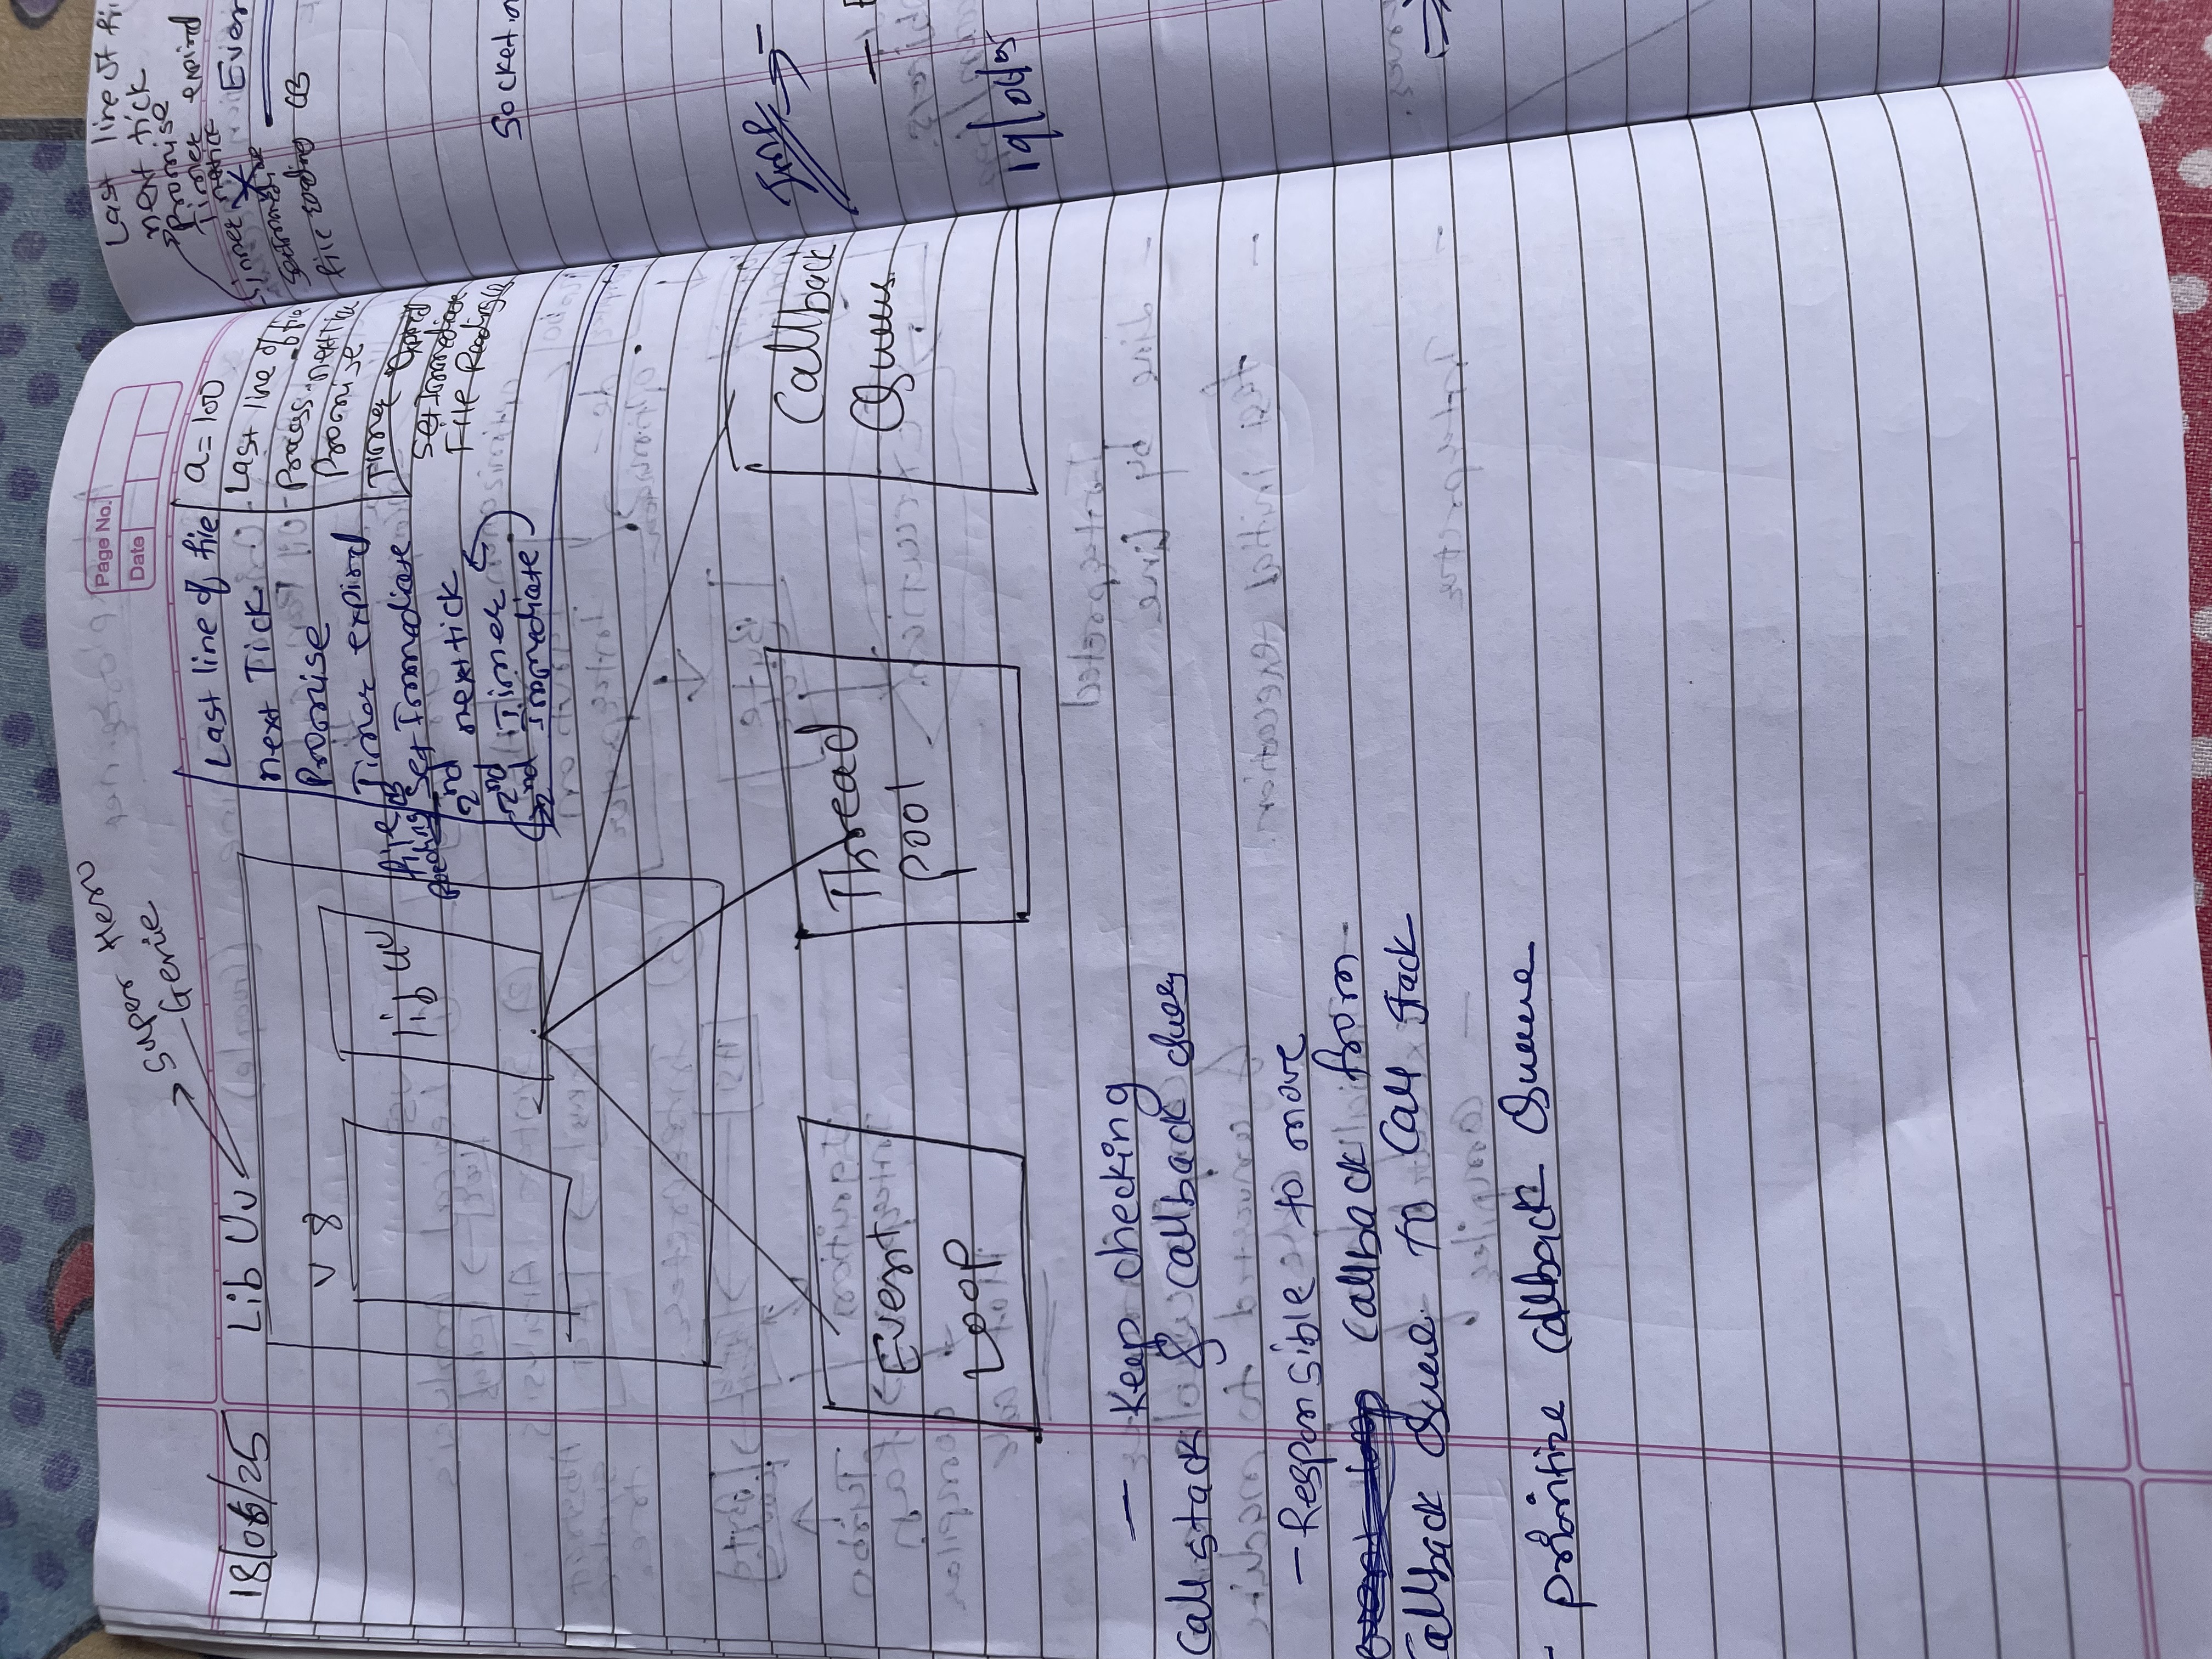 Super Hero
Genie
Page No.
Date
18/06/25
Lib Uv
V 8
lib uv
Last line of file
next Tick
Promise
Timer expired
file Reading CB
Set Immediate
2nd next tick
2nd Timer
2nd Immediate
a = 100
Last line of file
Process.nextTick
Promise
Timer expired
Set Immediate
File Reading CB
Event
Loop
Thread
Pool
Callback
Queue
— Keep checking
Call stack & callback queue
— Responsible to move
event loop callback from
Callback Queue to Call Stack
- Prioritize Callback Queue
Last line of fi
next tick
Promise
Timer expired
inner
file reading CB
Even
Socket.o
Imp
19/06/25